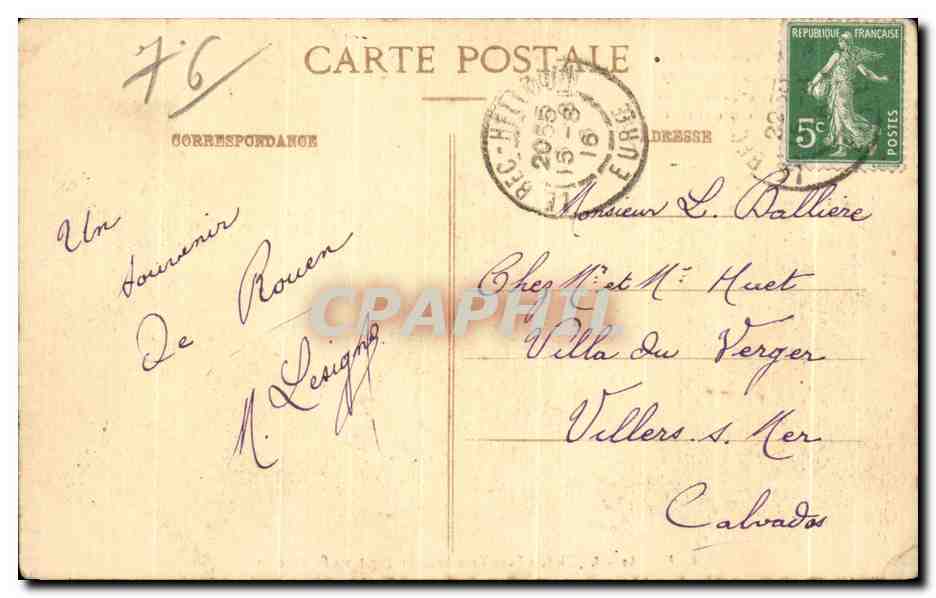 76
CARTE POSTALE
CORRESPONDANCE
ADRESSE
LE BEC-HELLOUIN
20 55
15-8
16
EURE
REPUBLIQUE FRANÇAISE
5c
POSTES
Un
souvenir
De Rouen
M. Lesigne
Monsieur L. Balliere
Chez Mr et Me Huet
Villa du Verger
Villers. s. Mer
Calvados
CPAPHIL